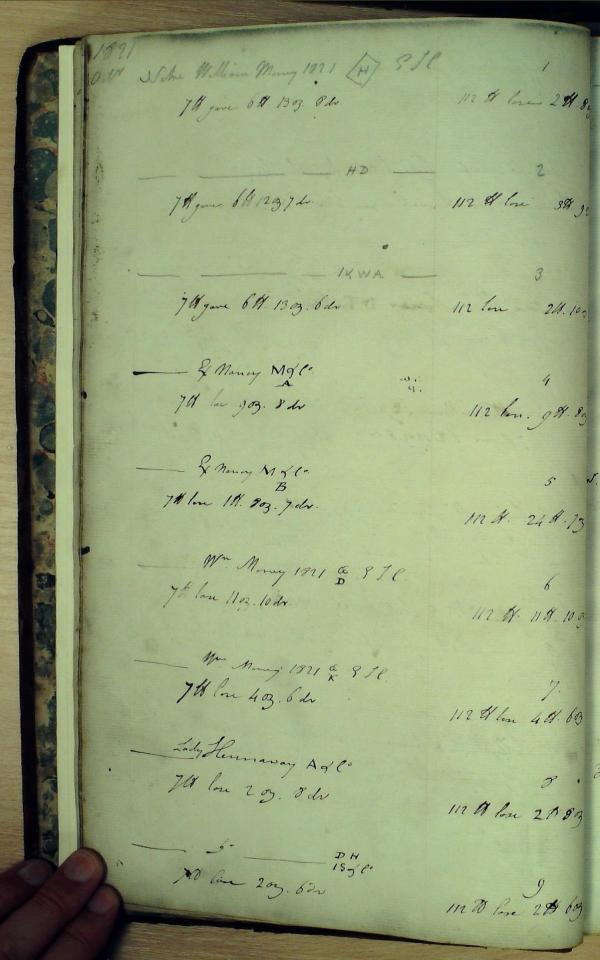 1821
Octr Nitre William Money 1821 H E I C 1
7 lb gave 6 lb 13 oz 8 dr 112 lb lose 2 lb 8 oz
HD 2
7 lb gave 6 lb 12 oz 7 dr 112 lb lose 3 lb 9
1KWA 3
7 lb gave 6 lb 13 oz. 6 dr 112 lose 2 lb. 10 oz
Ex Nancy M & Co 4
A
7 lb lose 9 oz. 8 dr 112 lose. 9 lb. 8 oz
Ex Nancy M & Co 5
B
7 lb lose 1 lb. 8 oz. 7 dr. 112 lb. 24 lb. 7
Wm Money 1821 & D E I C 6
7 lb lose 11 oz. 10 dr 112 lb. 11 lb. 10 oz
Wm Money 1821 & K E I C 7.
7 lb lose 4 oz. 6 dr 112 lb lose 4 lb. 6 oz
Lady Hennaway A & Co 8
7 lb lose 2 oz. 8 dr 112 lb lose 2 lb 8 oz
DH
18 & Co 9
7 lb lose 2 oz. 6 dr 112 lb lose 2 lb 6 oz